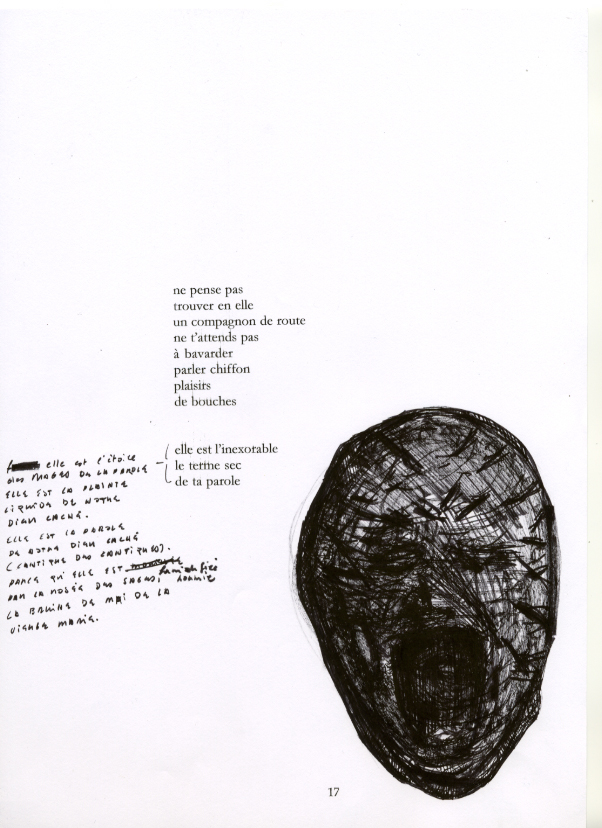 ne pense pas
trouver en elle
un compagnon de route
ne t'attends pas
à bavarder
parler chiffon
plaisirs
de bouches
elle est l'inexorable
le terme sec
de ta parole
elle est l'étoile
des MAGES DE LA PAROLE
ELLE EST LA PLAINTE
LIQUIDE DE NOTRE
DIEU CACHÉ.
ELLE EST LA PAROLE
DE NOTRE DIEU CACHÉ
(CANTIQUE DES CANTIQUES).
PARCE QU'ELLE EST
PAR LA ROSÉE DES SAGES,
LA BRUINE DE MAI DE LA
VIERGE MARIE.
17